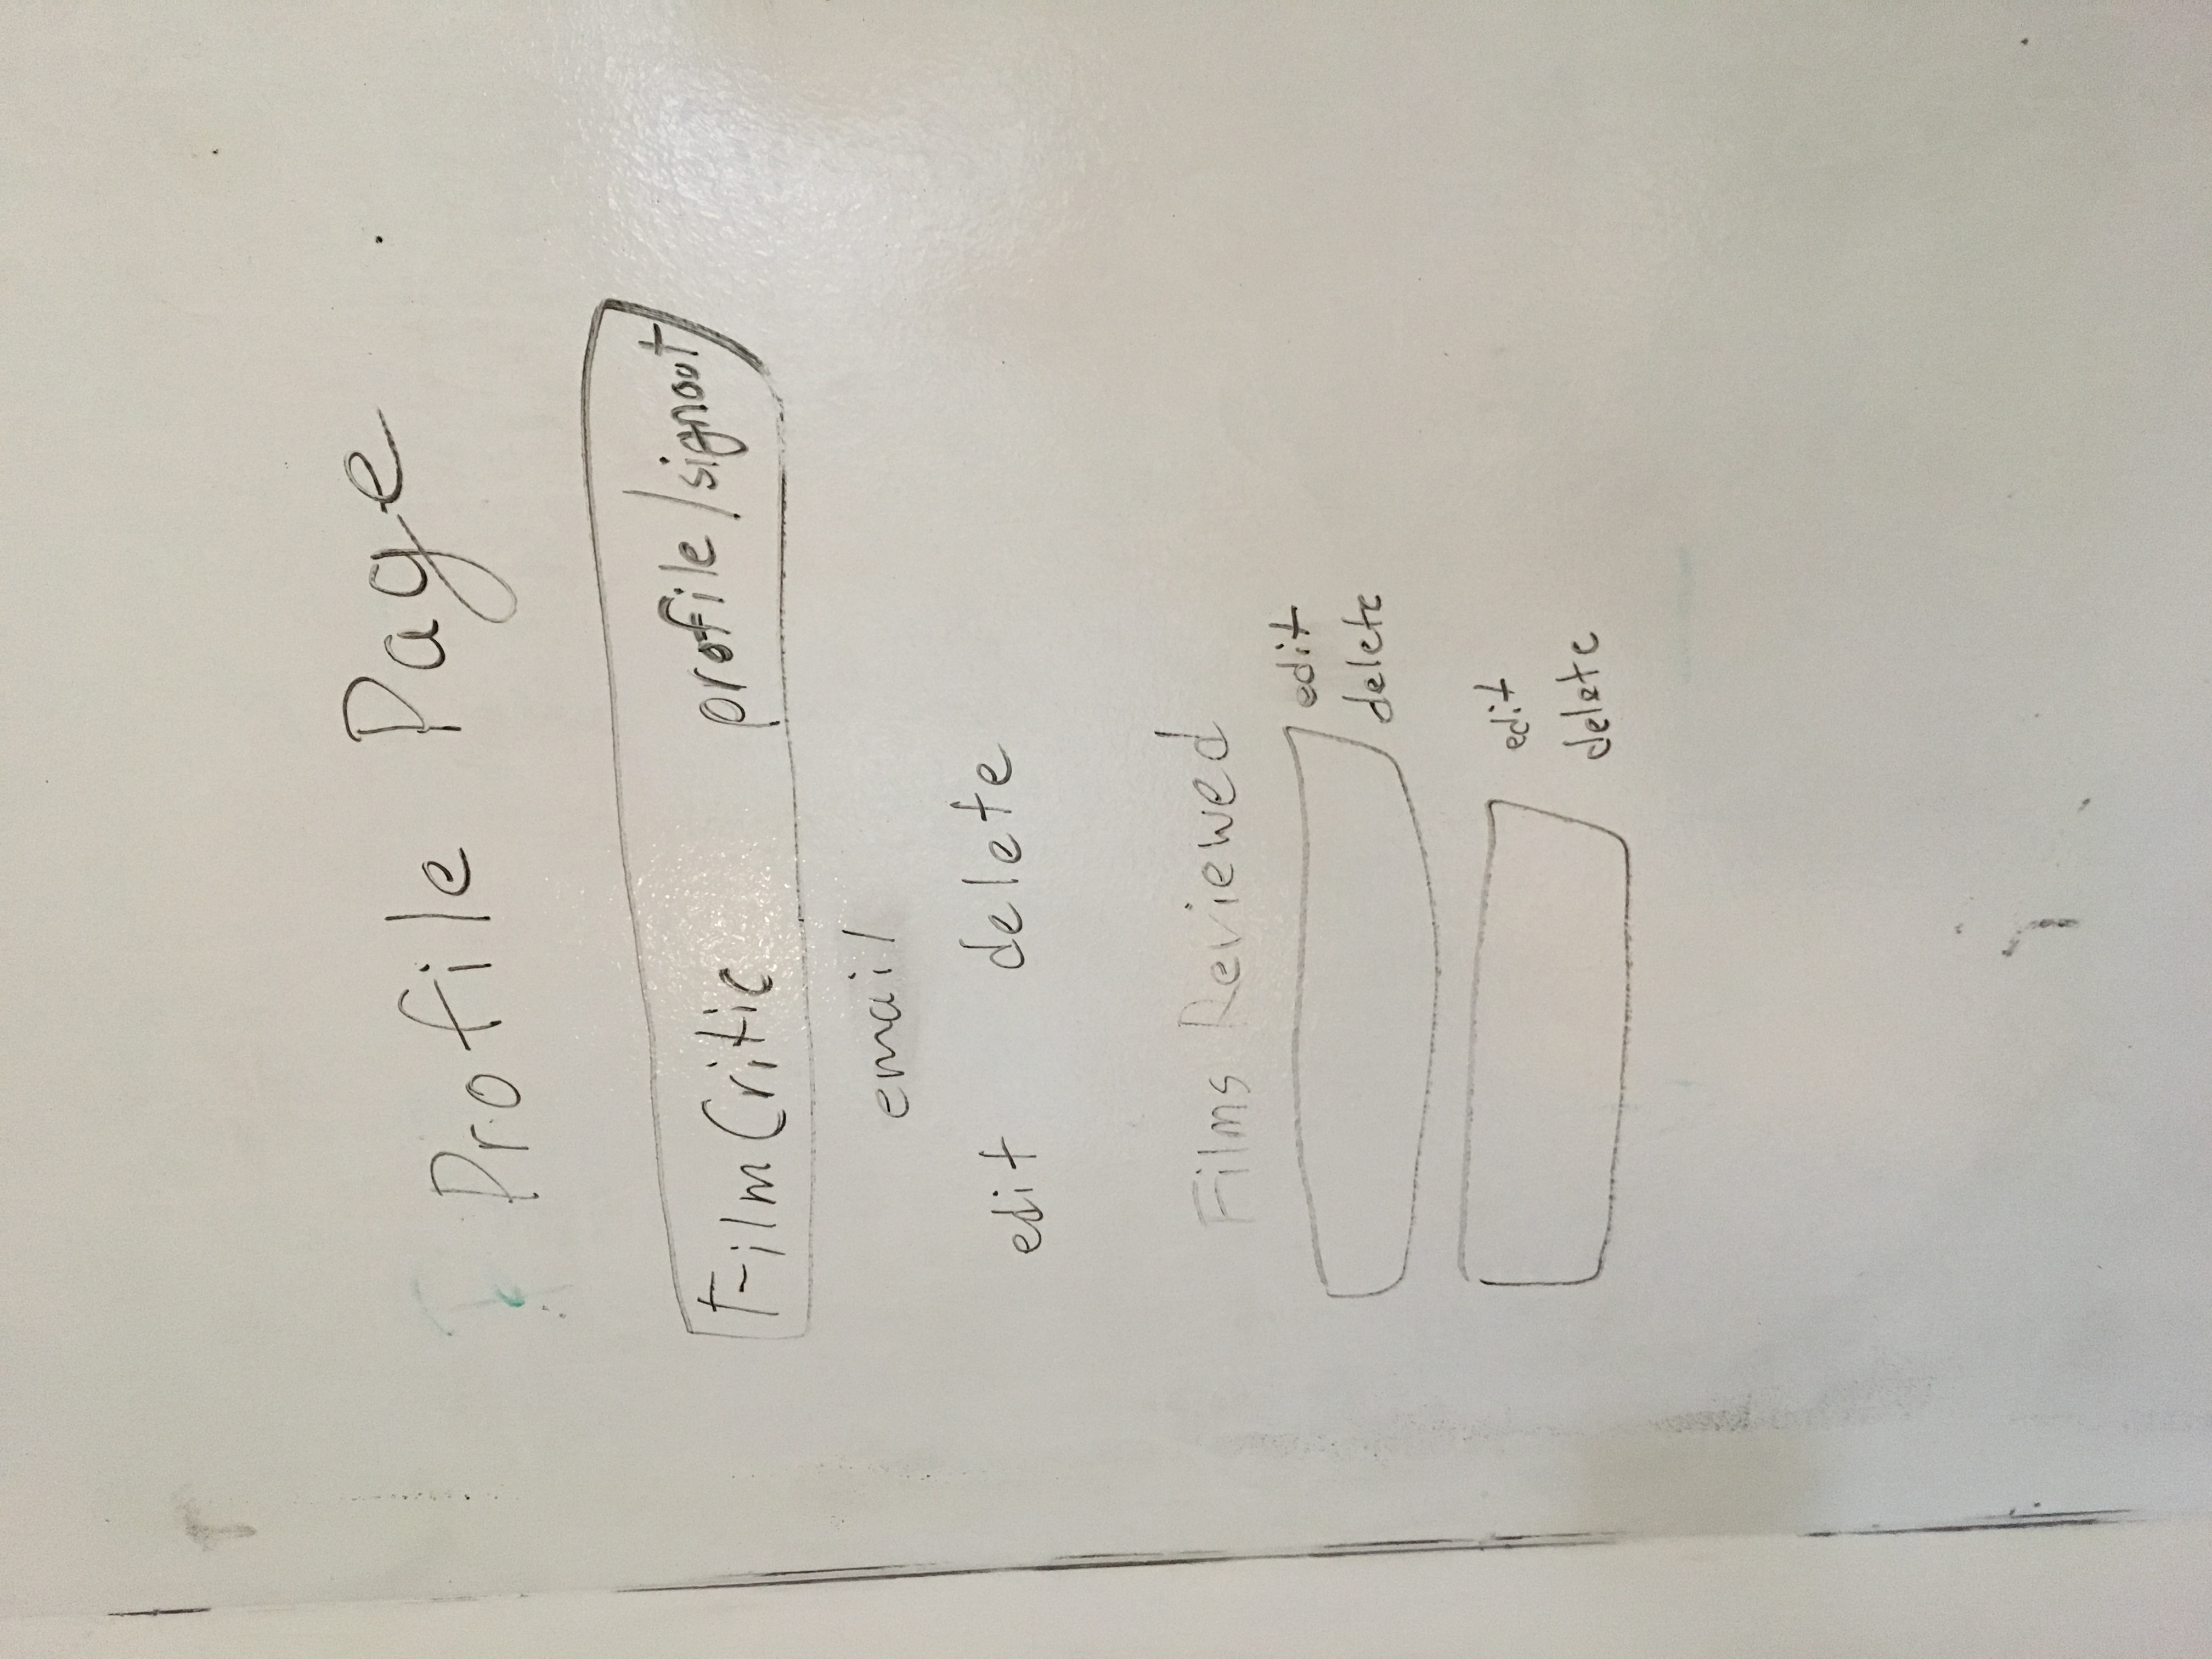 Profile Page
Film Critic profile/signout
email
edit delete
Films Reviewed
edit
delete
edit
delete